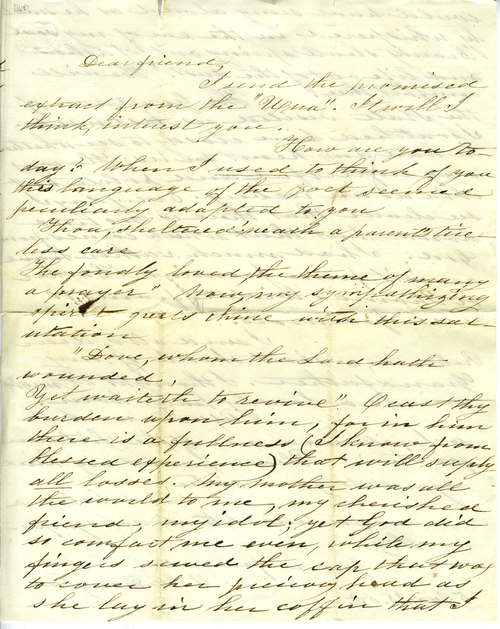 Dear friend,
I send the promised
extract from the "Una". It will I
think, interest you.
How are you to-
day? When I used to think of you
this language of the poet seemed
peculiarly adapted to you
Thou, sheltered neath a parent's tire-
less care
The fondly loved, the theme of many
a prayer" now, my sympathizing
spirit greets thine with this sal-
utation
"Dove, whom the Lord hath
wounded,
Yet waiteth to revive" O cast thy
burden upon him, for in him
there is a fullness (I know from
blessed experience) that will supply
all losses. My mother was all
the world to me, my cherished
friend, my idol; yet God did
so comfort me even, while my
fingers sewed the cap that was
to cover her precious head as
she lay in her coffin that I